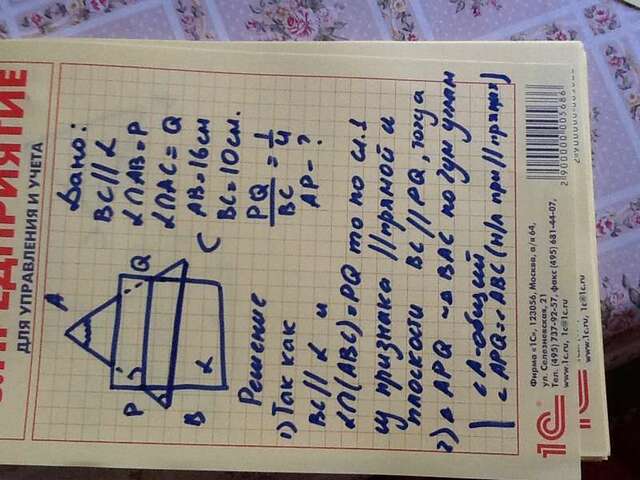 ПРЕДПРИЯТИЕ
ДЛЯ УПРАВЛЕНИЯ И УЧЕТА
A
P
Q
B
C
α
Дано:
BC // α
α∩AB=P
α∩AC=Q
AB=16см
BC=10см.
PQ/BC = 1/4
AP-?
Решение
1) Так как
BC // α и
α∩(ABC)=PQ то по сл.1
из признака // прямой и
плоскости BC // PQ, тогда
2) ΔAPQ ~ ΔBAC по двум углам
<A-общий
<APQ=<ABC (н/л при // прямых)
1С
Фирма «1С», 123056, Москва, а/я 64,
ул. Селезневская, 21
Тел. (495) 737-92-57, факс (495) 681-44-07,
www.1c.ru, 1c@1c.ru
2 900000 005686
1С
www.1c.ru, 1c@1c.ru